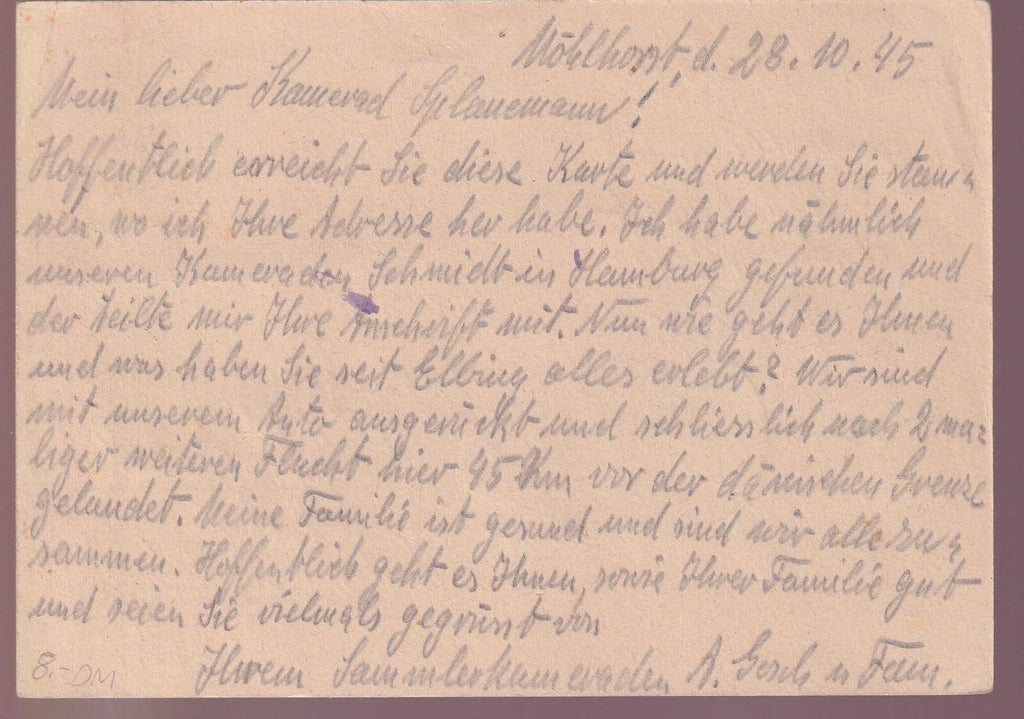 Möhlhorst, d. 28.10.45
Mein lieber Kamerad Splanemann!
Hoffentlich erreicht Sie diese Karte und werden Sie stau-
nen, wo ich Ihre Adresse her habe. Ich habe nähmlich
unseren Kameraden Schmidt in Hamburg gefunden und
der teilte mir Ihre Anschrift mit. Nun wie geht es Ihnen
und was haben Sie seit Elbing alles erlebt? Wir sind
mit unserem Auto ausgerückt und schliesslich nach 2 ma-
liger weiteren Flucht hier 45 Km vor der dänischen Grenze
gelandet. Meine Familie ist gesund und sind wir alle zu-
sammen. Hoffentlich geht es Ihnen, sowie Ihrer Familie gut
und seien Sie vielmals gegrüsst von
Ihrem Sammlerkameraden A. Gosch u Fam.
8.- DM